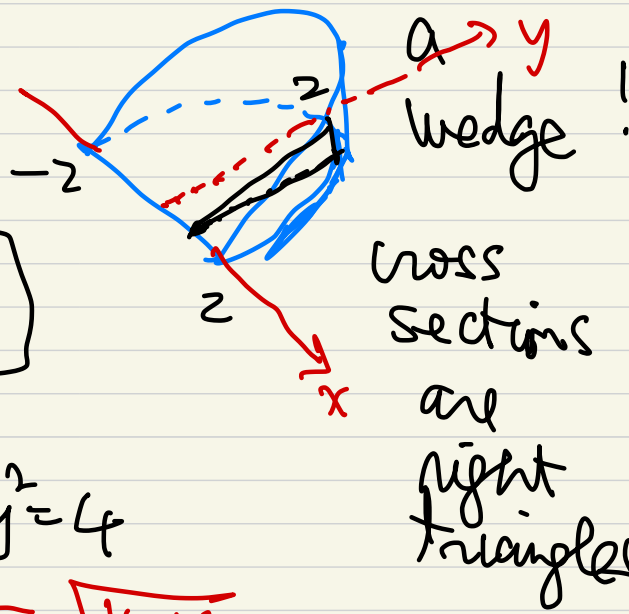 a
y
2
wedge
!
-2
2
cross
sections
x
are
right
triangles
y² = 4